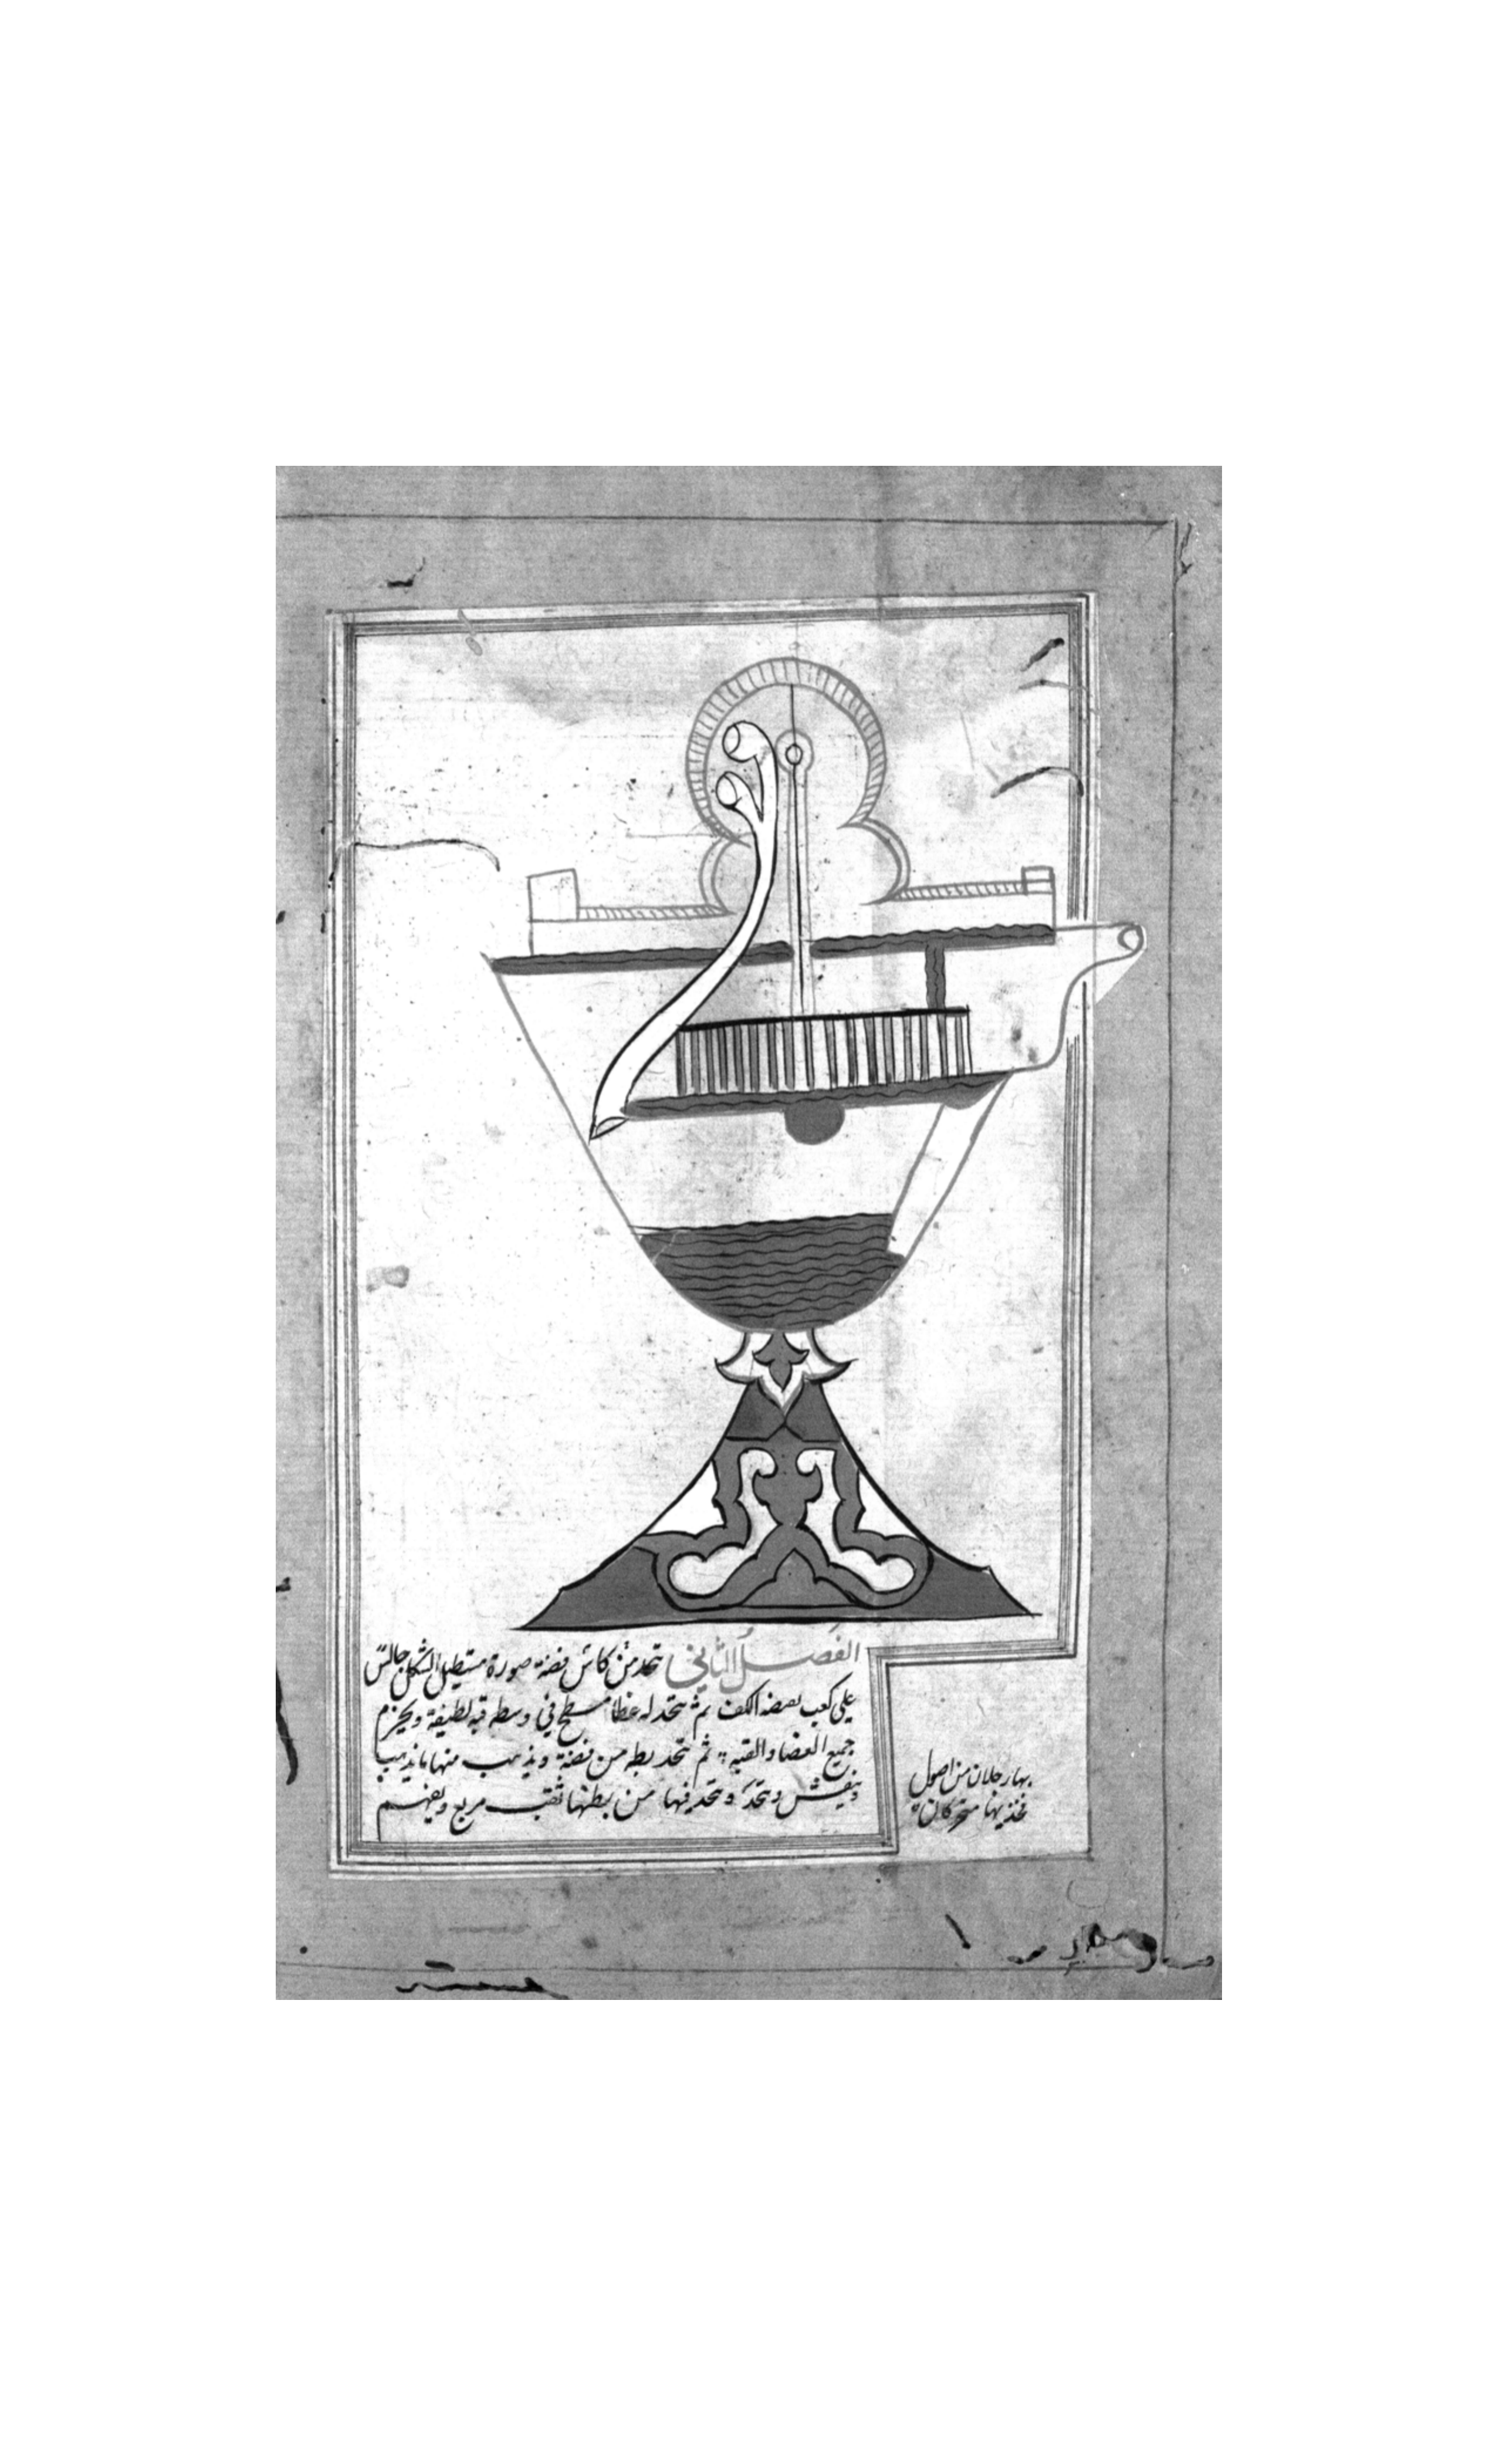 الفصل الثاني يتخذ من كاس فضة صورة مستطيل الشكل جالس
علي كعب بقبضه الكف ثم يتخد له غطا مسطح في وسطه قبه لطيفة ويخرم
جميع الغطا والقبه ثم يتخد بطه من فضة ويذهب منها ما يذهب
وينقش ويتخد فيها من بطنها ثقب مربع ويفهم
بها رجلان من اصول
فخذيها متحركان